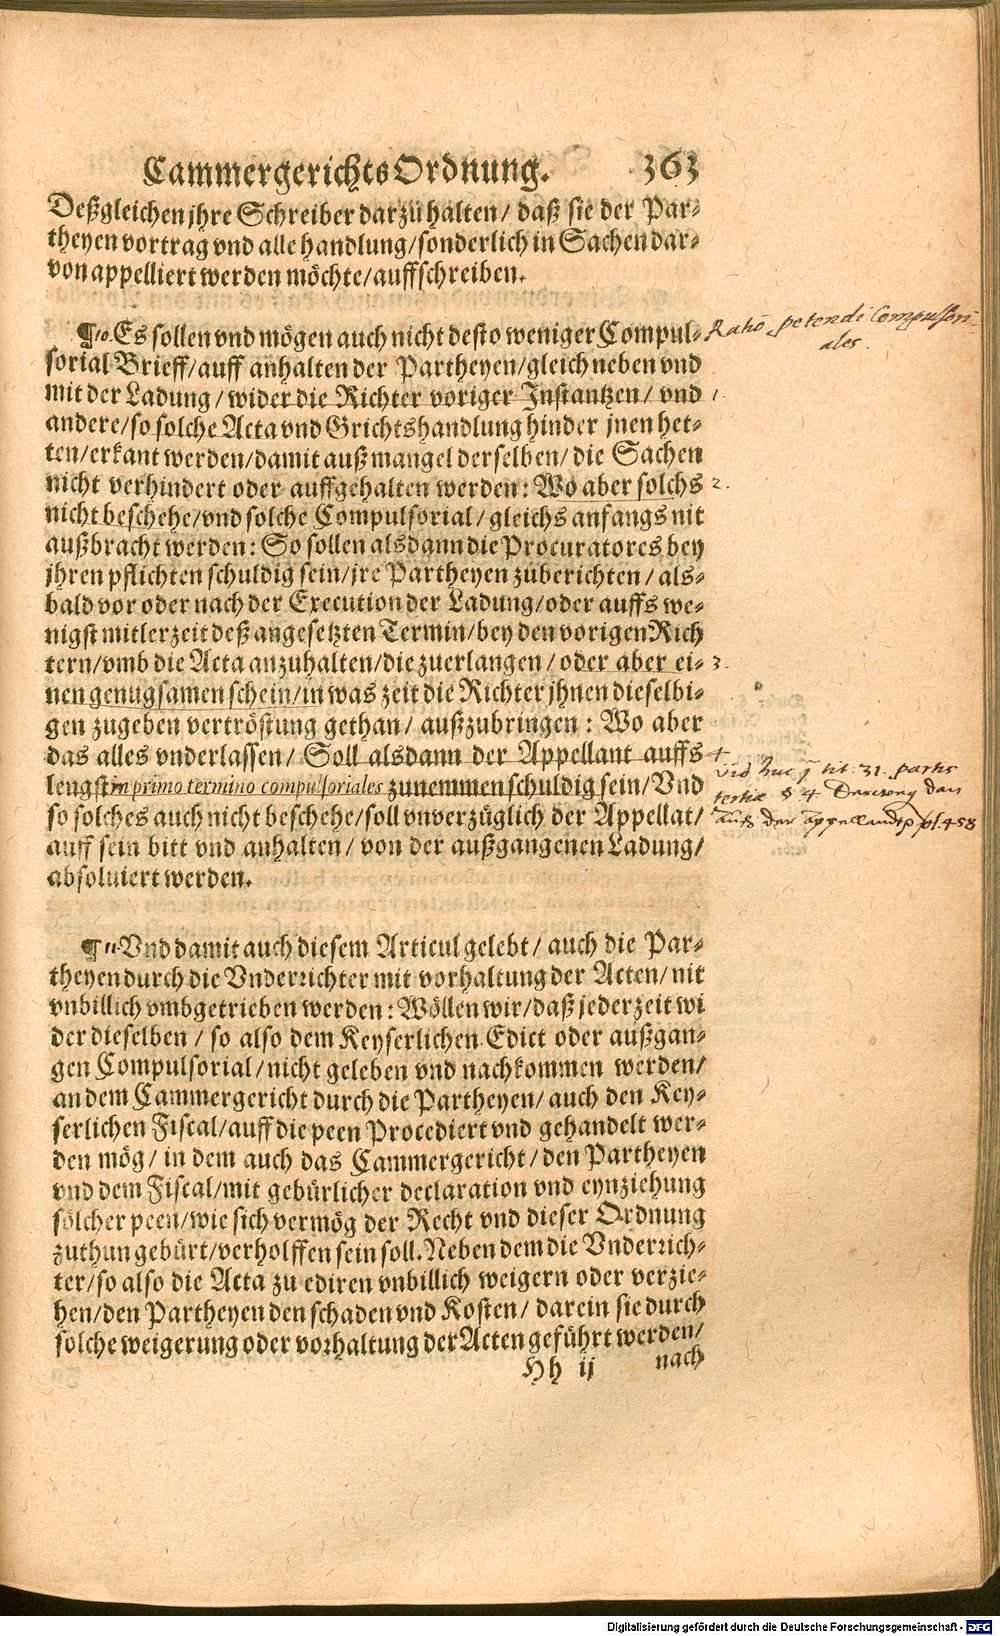 CammergerichtsOrdnung. 363
Deßgleichen jhre Schreiber darzu halten / daß sie der Par⸗
theyen vortrag vnd alle handlung / sonderlich in Sachen dar⸗
von appelliert werden möchte / auffschreiben.
¶10. Es sollen vnd mögen auch nicht desto weniger Compul⸗
sorial Brieff / auff anhalten der Partheyen / gleich neben vnd
mit der Ladung / wider die Richter voriger Instantzen / vnd
andere / so solche Acta vnd Grichtshandlung hinder jnen het⸗
ten / erkant werden / damit auß mangel derselben / die Sachen
nicht verhindert oder auffgehalten werden: Wo aber solchs
nicht beschehe / vnd solche Compulsorial / gleichs anfangs nit
außbracht werden: So sollen alsdann die Procuratores bey
jhren pflichten schuldig sein / jre Partheyen zuberichten / als⸗
bald vor oder nach der Execution der Ladung / oder auffs we⸗
nigst mitlerzeit deß angesetzten Termin / bey den vorigen Rich
tern / vmb die Acta anzuhalten / die zuerlangen / oder aber ei⸗
nen genugsamen schein / in was zeit die Richter jhnen dieselbi⸗
gen zugeben vertröstung gethan / außzubringen: Wo aber
das alles vnderlassen / Soll alsdann der Appellant auffs
lengst in primo termino compulsoriales zunemmen schuldig sein / Vnd
so solches auch nicht beschehe / soll vnverzüglich der Appellat /
auff sein bitt vnd anhalten / von der außgangenen Ladung /
absoluiert werden.
¶11. Vnd damit auch diesem Articul gelebt / auch die Par⸗
theyen durch die Vnderrichter mit vorhaltung der Acten / nit
vnbillich vmbgetrieben werden: Wöllen wir / daß jederzeit wi
der dieselben / so also dem Keyserlichen Edict oder außgan⸗
gen Compulsorial / nicht geleben vnd nachkommen werden /
an dem Cammergericht durch die Partheyen / auch den Key⸗
serlichen Fiscal / auff die peen Procediert vnd gehandelt wer⸗
den mög / in dem auch das Cammergericht / den Partheyen
vnd dem Fiscal / mit gebürlicher declaration vnd eynziehung
sölcher peen / wie sich vermög der Recht vnd dieser Ordnung
zuthun gebürt / verholffen sein soll. Neben dem die Vnderrich⸗
ter / so also die Acta zu ediren vnbillich weigern oder verzie⸗
hen / den Partheyen den schaden vnd Kosten / darein sie durch
solche weigerung oder vorhaltung der Acten geführt werden /
Hh ij nach
Ratio petendi Compulsori⸗
ales.
1.
2.
3.
4
vid huc tit. 31. partis
tertiæ § 4
auß der appellantē fol. 458
Digitalisierung gefördert durch die Deutsche Forschungsgemeinschaft - DFG